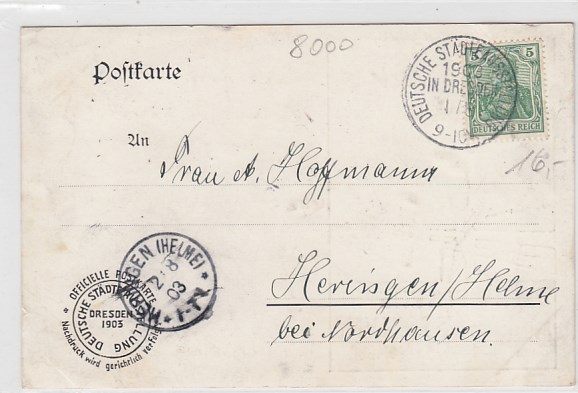 8000
Postkarte
DEUTSCHE STÄDTEAUSSTELLUNG
1903
IN DRESDEN
9-10
5
DEUTSCHES REICH
16,-
An
Frau A. Hoffmann
Heringen/Helme
bei Nordhausen.
HERINGEN (HELME)
2 8
03
OFFICIELLE POSTKARTE
DEUTSCHE STÄDTEAUSSTELLUNG
DRESDEN
1903
Nachdruck wird gerichtlich verfolgt